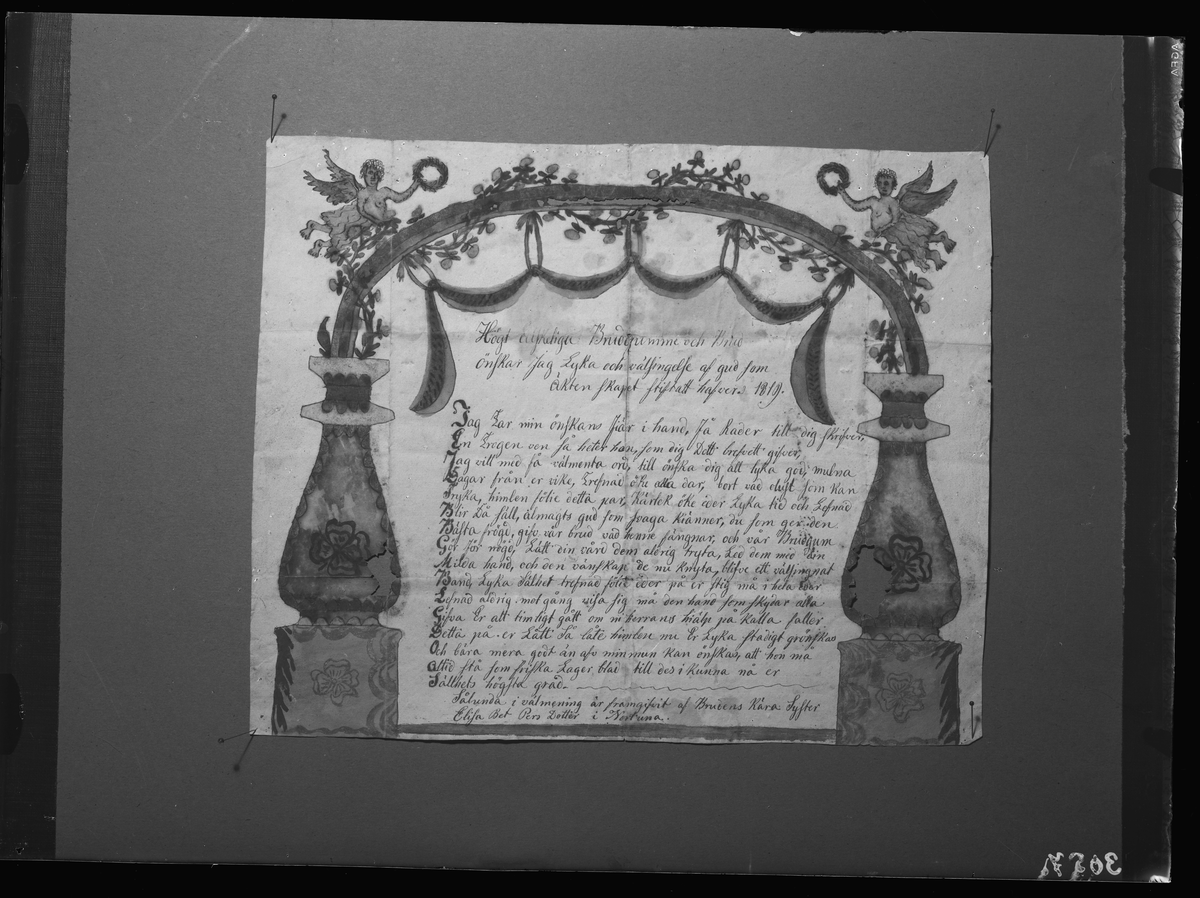 Högt ährvördiga Brudgumme och Brud
Önskar Jag Lyka och välsingelse af gud som
Äkten skapet stiftatt hafver. 1819.
Jag Tar min önskans i hand, Få Rader till dig skrifver,
En Trogen ven så heter han, som dig Dett brefvett gifver,
Jag vill med få välmenta ord, till önska dig all lyka god, mulna
Dagar från er vike, Trefnad öke alla dar, bort väd som kan
Tryka, himlen följe detta par, Kärlek öke eder Lyka tid och Lefnad
Blir Då säll, almagts gud som svaga känner, du som ger den
Bästa fröjd, gifv vår brud väd henne fängnar, och vår Brudgum
Gör för nögd, Lått din vård dem aldrig tryta, Led dem med din
Milda hand, och den vänskap de nu knyta, blifve ett välsingnat
Band Lyka Sälhet trefnad följe eder på er stig må i hela eder
Lefnad aldrig motgång visa sig må den hand som skydar alla
Gifva Er allt timligt gått om ni herrans hjälp på kalla faller
Detta på er Lått Så låte himlen nu Er Lyka städigt grönskas
Och bära mera godt än afv min mun kan önskas, att hon må
altid stå som friska Lager blad till des i kunna nå er
Sällhets högsta grad.
Sålunda i välmening är framgifvit af Brudens Kära Syster
Elisa Bet Pers Dotter i Norrtuna.
AGFA